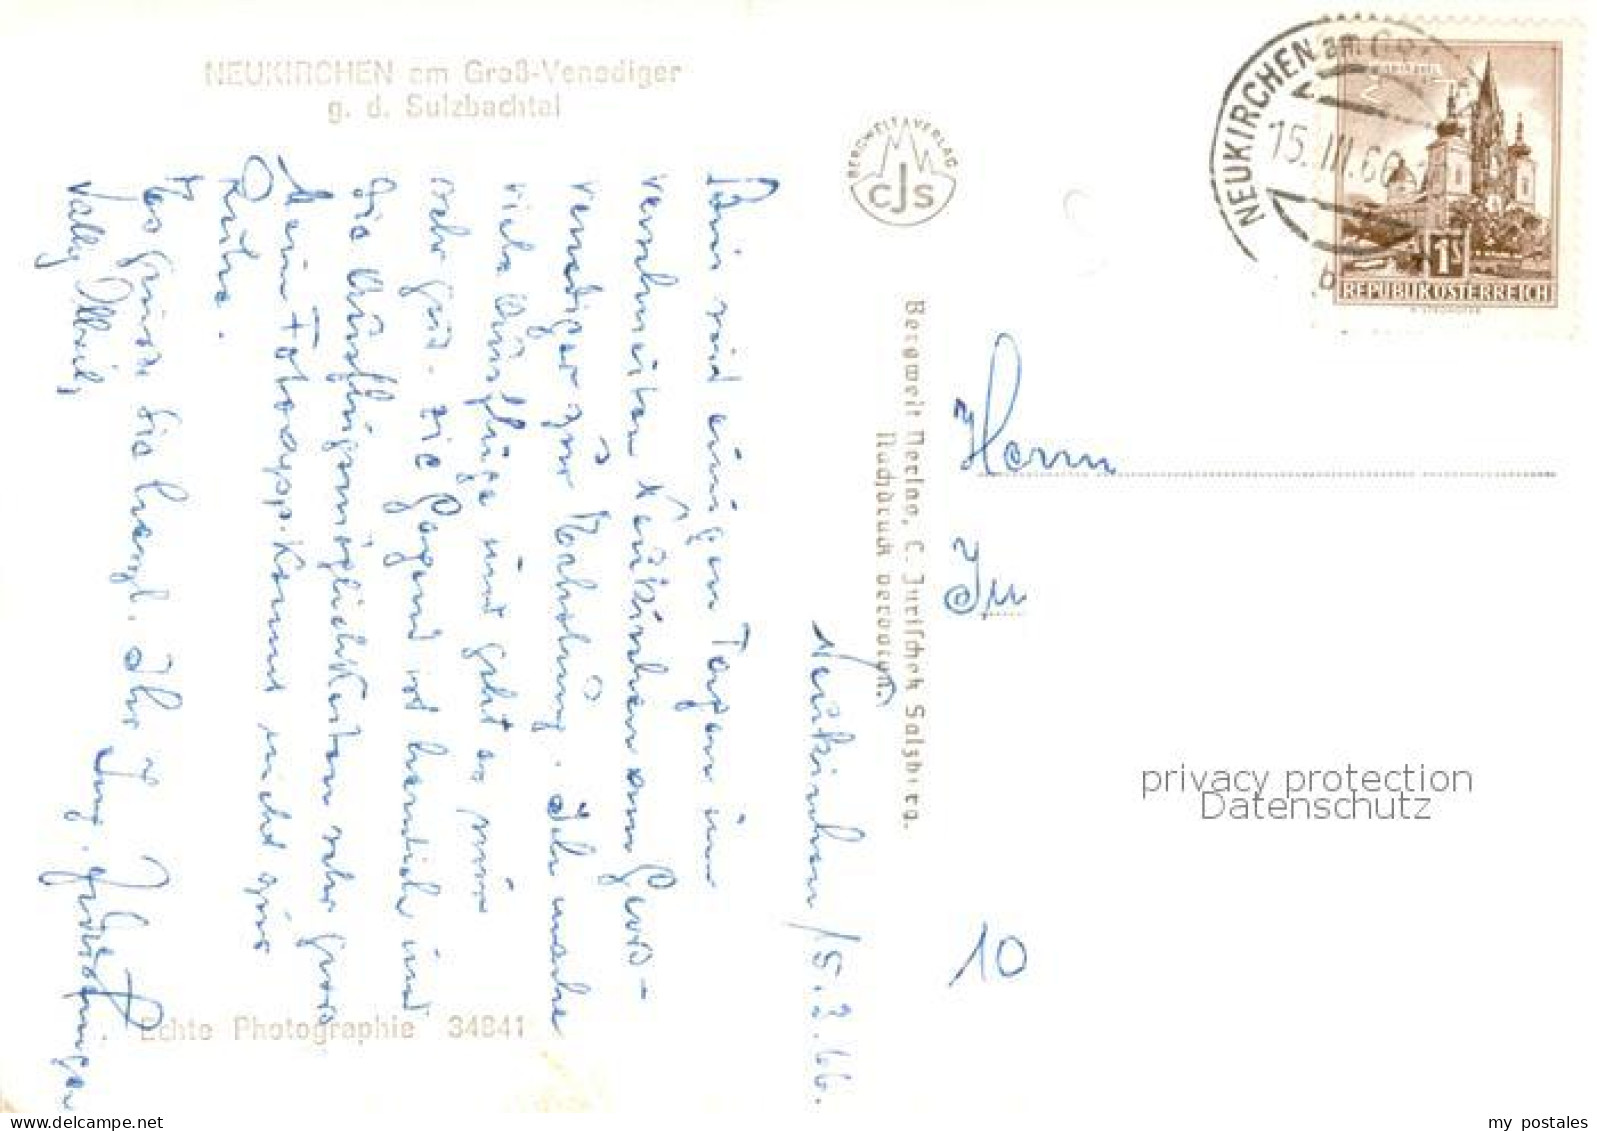 NEUKIRCHEN am Groß-Venediger
g. d. Sulzbachtal
BERGWELT VERLAG
CJS
NEUKIRCHEN am Gr.
15. III. 66
b
1S
REPUBLIK ÖSTERREICH
Neukirchen 15. 3. 66.
Bin seit einigen Tagen im
verschneiten Neukirchen am Gross-
venediger zur Erholung. Ich mache
viele Ausflüge und geht es mir
sehr gut. Die Gegend ist herrlich und
die Ausflugsmöglichkeiten sehr gross
Mein Fotoapp. kommt nicht zur
Ruhe.
Es grüsst Sie herzl. Ihr
Bergwelt Verlag, C. Jurischek Salzburg.
Nachdruck verboten.
Herrn
In
10
privacy protection
Datenschutz
Echte Photographie 34841
www.delcampe.net
my_postales